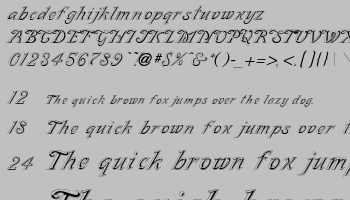 abcdefghijklmnopqrstuvwxyz
ABCDEFGHIJKLMNOPQRSTUVWX
0123456789 @#$%^&*()-_+=><.{}[]|
12 The quick brown fox jumps over the lazy dog.
18 The quick brown fox jumps over
24 The quick brown fox jum